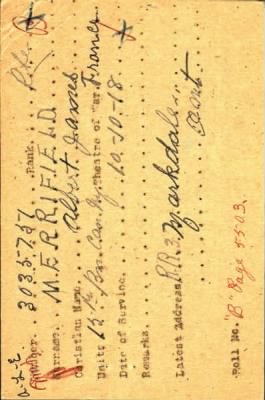 a-2-E
Number. 3035757 Rank. Pte B
Surname. MERRIFIELD
Christian Name. Albert James
Unit: 12th Can. Theatre of War. France
Date of Service. 10-10-18
Remarks.
Latest Address. R.R.3, Markdale,
Ont
Roll No. "B" Page 5503.